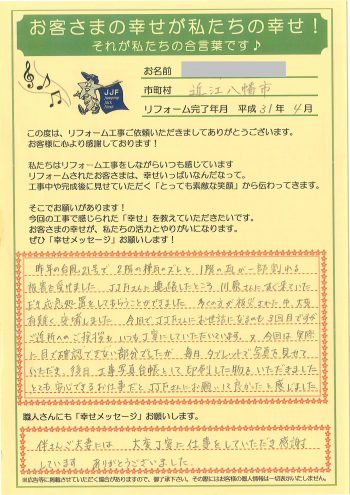 お客さまの幸せが私たちの幸せ！
それが私たちの合言葉です♪
JJF
お名前
市町村 近江八幡市
リフォーム完了年月 平成31年4月
この度は、リフォーム工事ご依頼いただきましてありがとうございます。
お客様に心より感謝しております！
私たちはリフォーム工事をしながらいつも感じています
リフォームされたお客さまは、幸せいっぱいなんだなって。
工事中や完成後に見せていただく「とっても素敵な笑顔」から伝わってきます。
そこでお願いがあります！
今回の工事で感じられた「幸せ」を教えていただきたいです。
お客さまの幸せが、私たちの活力とやりがいになります。
ぜひ「幸せメッセージ」お願いします！
昨年の台風21号で 2階の棟瓦のズレと 1階の瓦が一部割れる
被害を受けました JJFさんに連絡したところ 川島さんに 来ていた
だき応急処置をしてもらうことができました 多くの方が被災された中、大変
有難く 安堵しました 今回で JJFさんにお世話になるのも 3回目ですが
ご近所へのご挨拶も いつも丁寧にしていただいています。 又 今回は 実際
に目で確認できない部分でしたが 毎日 タブレットで写真を見せて
いただき、後日 工事写真台帳として印刷した物を いただきました
とても 安心できるお仕事だと JJFさんにお願いして良かったと感じました
職人さんにも「幸せメッセージ」お願いします。
伴さんご夫妻には 大変丁寧に仕事をしていただき感謝
しています ありがとうございました。
※広告等に掲載させていただく場合がありますので、御了承下さい。その際にはお客様の個人情報は一切表示いたしません。